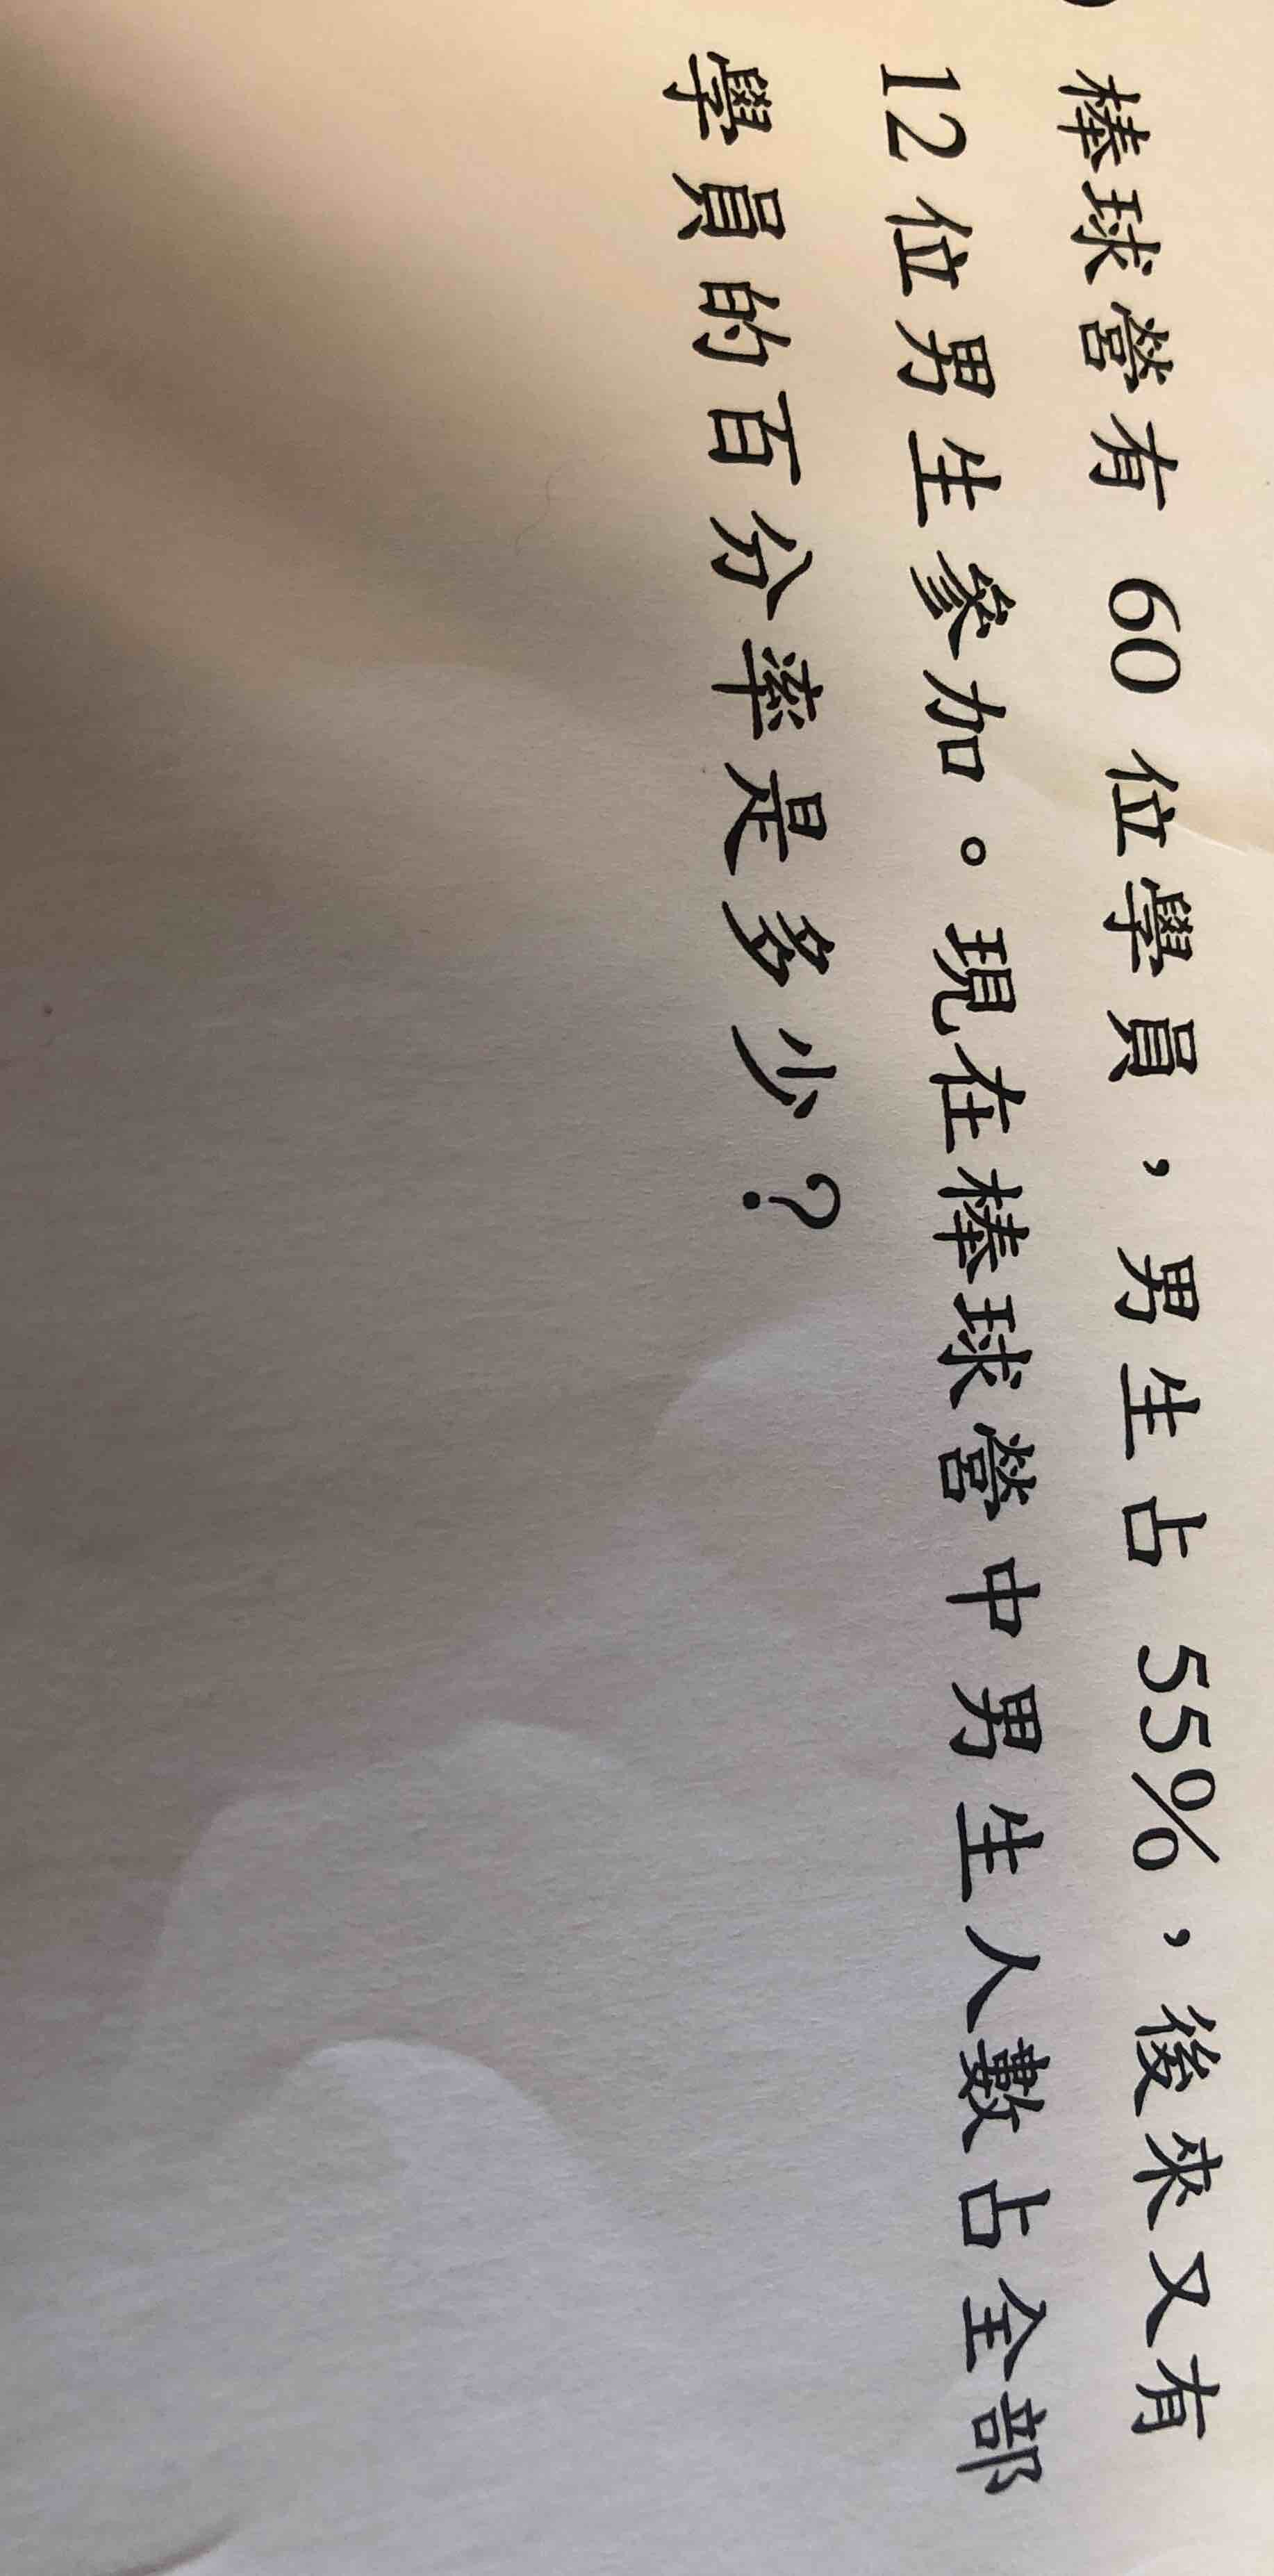 棒球營有 60 位學員，男生占 55%，後來又有
12 位男生參加。現在棒球營中男生人數占全部
學員的百分率是多少？